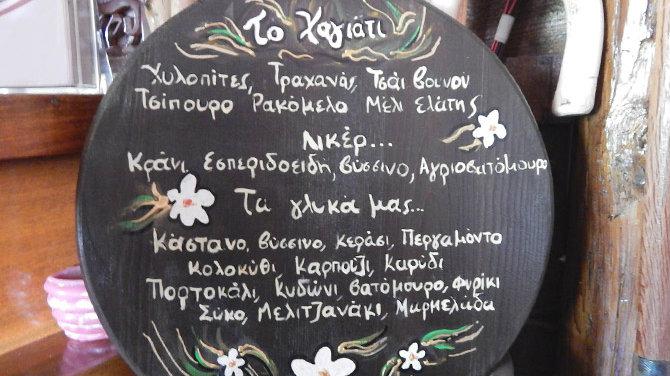 Το Χαγιάτι
Χυλοπίτες, Τραχανάς, Τσάι βουνού
Τσίπουρο Ρακόμελο Μέλι Ελάτης
Λικέρ...
Κράνι Εσπεριδοειδή, βύσσινο, Αγριοβατόμουρο
Τα γλυκά μας...
Κάστανο, βύσσινο, κεράσι, Περγαμόντο
Κολοκύθι, Καρπούζι, καρύδι
Πορτοκάλι, Κυδώνι βατόμουρο, Φυρίκι
Σύκο, Μελιτζανάκι, Μαρμελάδα